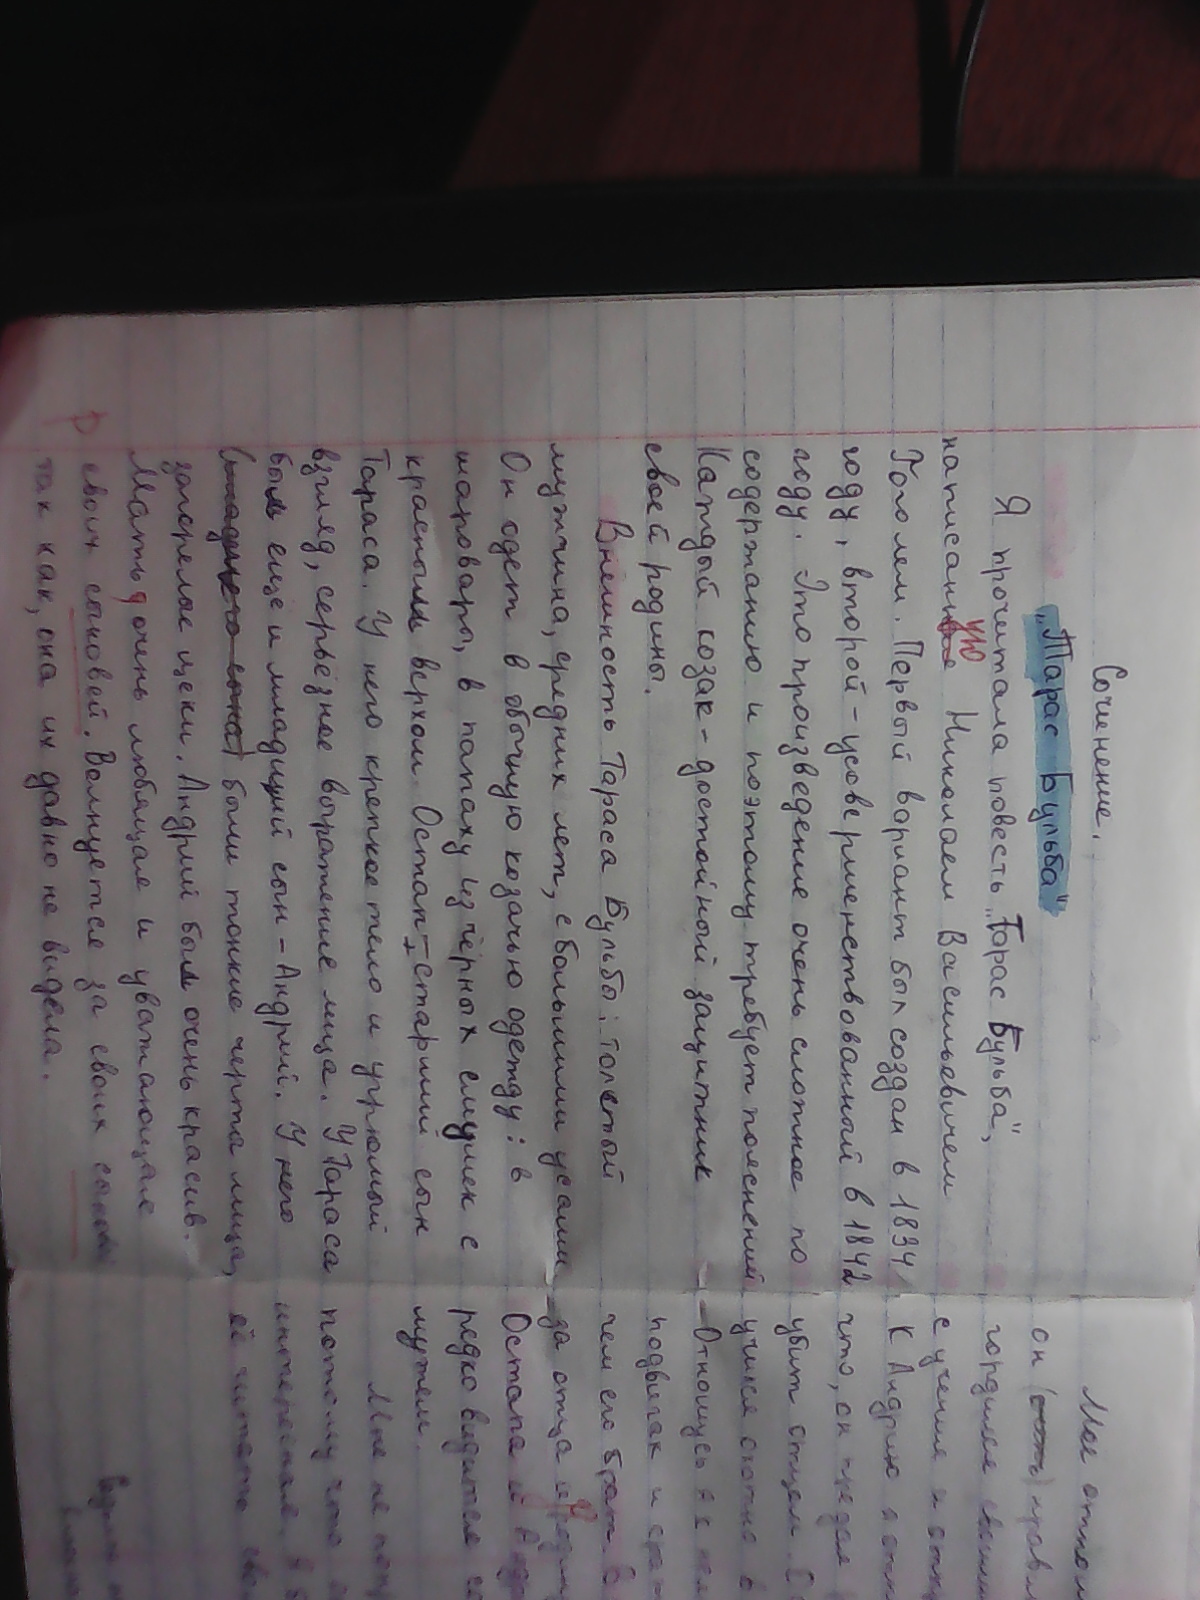 Сочинение.
"Тарас Бульба"
Я прочитала повесть "Тарас Бульба",
написанную Николаем Васильевичем
Гоголем. Первый вариант был создан в 1834
году, второй - усовершенствованный в 1842
году. Это произведение очень сложное по
содержанию и поэтому требует пояснений
Каждый козак - достойный защитник
своей родины.
Внешность Тараса Бульбы: толстый
мужчина, средних лет, с большими усами
Он одет в обычную козачью одежду: в
шаровары, в папаху из чёрных смушек с
красным верхом. Остап - старший сын
Тараса. У него крепкое тело и угрюмый
взгляд, серьёзное выражение лица. У Тараса
был еще и младший сын - Андрий. У него
были тонкие черта лица,
загорелые щеки. Андрий был очень красив.
Мать очень любящая и уважающая
своих сыновей. Волнуется за своих
так как, она их давно не видела.
Моё
он
гордился
с учения и
к Андрию
что, он предал
убит отцом.
учился охотно
- Отношусь я к
подвигах и
чем его брат
за отца и
Остапа и
редко видится
мужем.
Мне не
потому что
интересная. Я
её читать